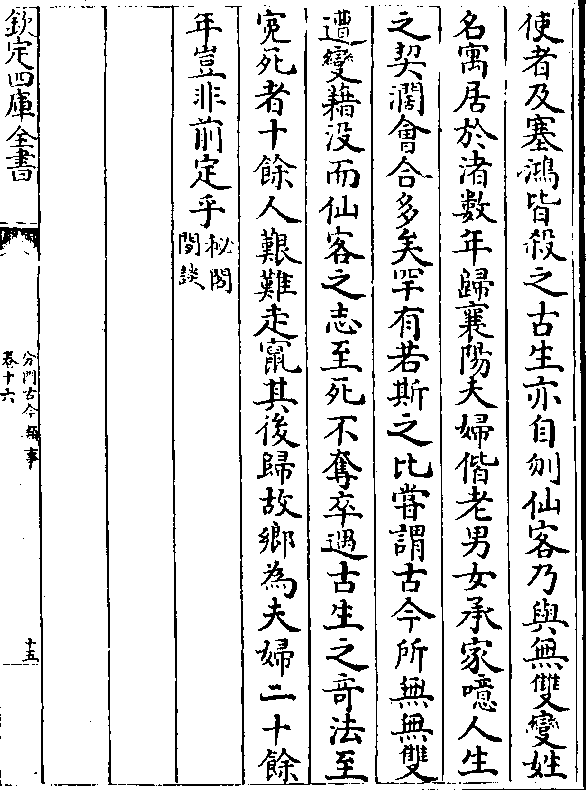 使者及塞鴻皆殺之古生亦自刎仙客乃與無雙變姓
名寓居於渚數年歸襄陽夫婦偕老男女承家噫人生
之契濶會合多矣罕有若斯之比嘗謂古今所無無雙
遭變藉没而仙客之志至死不奪卒遇古生之竒法至
寃死者十餘人艱難走竄其後歸故鄉為夫婦二十餘
年豈非前定乎秘閣
閒談
欽定四庫全書
分門古今類事
卷十六
十五